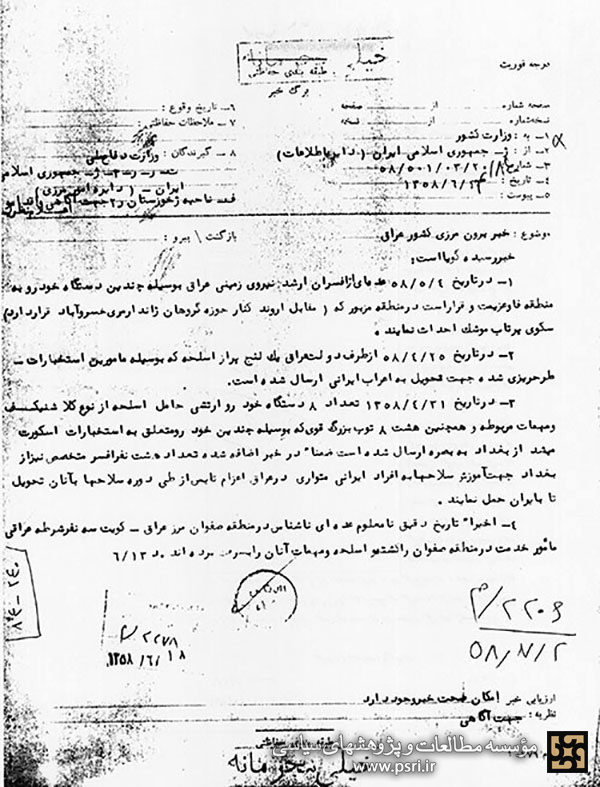 خیلی محرمانه
طبقه بندی حفاظتی
برگ خبر
درجه فوریت
صفحه شماره از صفحه
نسخه شماره از نسخه
۱- به : وزارت کشور
۲- از : ژ- جمهوری اسلامی ایران ( دایره اطلاعات )
۳- شماره : ۵۸/۵۰۱/۰۳/۲۰
۴- تاریخ : ۱۳۵۸/۶/
۵- پیوست :
۶- تاریخ وقوع :
۷- ملاحظات حفاظتی :
۸- گیرندگان : وزارت دفاع ملی
ژ- جمهوری اسلامی
ایران - ( دایره امور مرزی )
ناحیه ژ خوزستان جهت آگاهی
موضوع : خبر برون مرزی کشور عراق
بازگشت / پیرو :
خبر رسیده گویا است :
۱- در تاریخ ۵۸/۵/۴ عده‌ای از افسران ارشد نیروی زمینی عراق بوسیله چندین دستگاه خودرو به
منطقه فاو عزیمت و قرار است در منطقه مزبور که ( مقابل اروند کنار حوزه گروهان ژاندارمری خسروآباد قرار دارد )
سکوی پرتاب موشک احداث نمایند .
۲- در تاریخ ۵۸/۴/۲۵ از طرف دولت عراق یک لنج پر از اسلحه که بوسیله مامورین استخبارات -
طرح‌ریزی شده جهت تحویل به اعراب ایرانی ارسال شده است .
۳- در تاریخ ۱۳۵۸/۴/۳۱ تعداد ۸ دستگاه خودرو ارتشی حامل اسلحه از نوع کلاشنیکف
ومهمات مربوطه و همچنین هشت ۸ توپ بزرگ قوی که بوسیله چندین خودرو متعلق به استخبارات اسکورت
میشد از بغداد به بصره ارسال شده است ضمناً در خبر اضافه شده تعداد هشت نفر افسر متخصص نیز از
بغداد جهت آموزش سلاحها به افراد ایرانی متواری در عراق اعزام تا پس از طی دوره سلاحها بآنان تحویل
تا بایران حمل نمایند .
۴- اخیراً تاریخ دقیق نامعلوم عده ای ناشناس در منطقه صفوان مرز عراق - کویت سه نفر شرطه عراقی
مأمور خدمت در منطقه صفوان را کشته و اسلحه ومهمات آنان را بسرقت برده اند . د ۶/۱۳
۲۲۰۶/م
۵۸/۷/۲
۲۲۷۸/م
۱۳۵۸/۶/۱۸
ارزیابی خبر امکان صحت خبر وجود دارد
نظریه : جهت آگاهی
طبقه بندی حفاظتی
خیلی محرمانه
مؤسسه مطالعات و پژوهشهای سیاسی
www.psri.ir